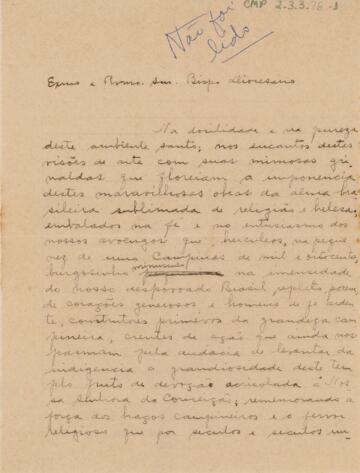 CMP 2.3.3.78-1
Não foi
lido
Exmo e Revmo. Snr. Bispo Diocesano
Na docilidade e na pureza
deste ambiente santo; nos encantos destas
visões de arte com suas mimosas gri-
naldas que floreiam a imponencia
destas maravilhosas obras da alma bra-
sileira sublimada de religião e belesa;
embalados na fé e no entusiasmo dos
nossos avoengos que, herculeos, na peque-
nez de uma Campinas de mil e oitocentos,
burgosinho minusculo na imensidade
do nosso despovoado Brasil repleto, porem,
de corações generosos e homens de fé arden-
te, construtores primévos da grandeza cam-
pineira, crentes de ação que ainda nos
pasmam pela audacia de levantar da
indigencia a grandiosidade deste tem-
plo fruto de devoção à Nos-
sa Senhora da Conceição; rememorando a
força dos braços campineiros e o fervor
religioso que por seculos e seculos